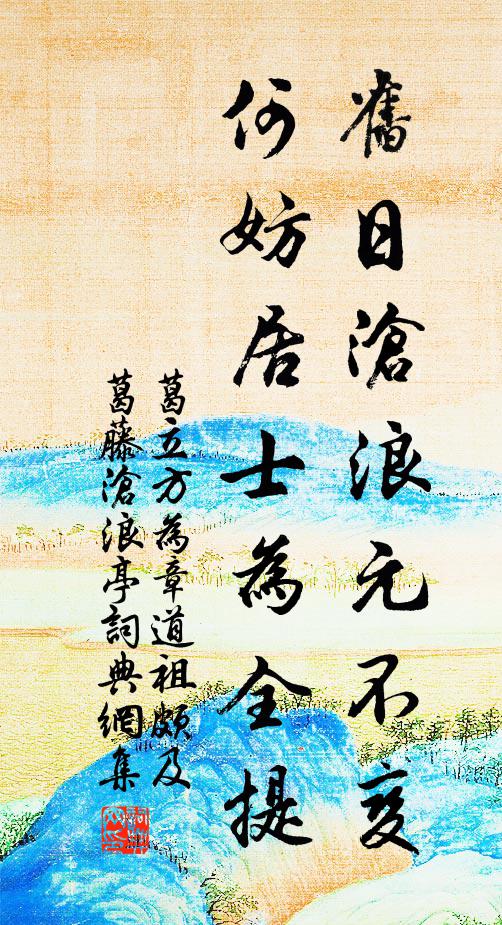 舊日滄浪元不变
何妨居士為全提
葛立方為章道祖頗及
葛藤滄浪亭詞典網集